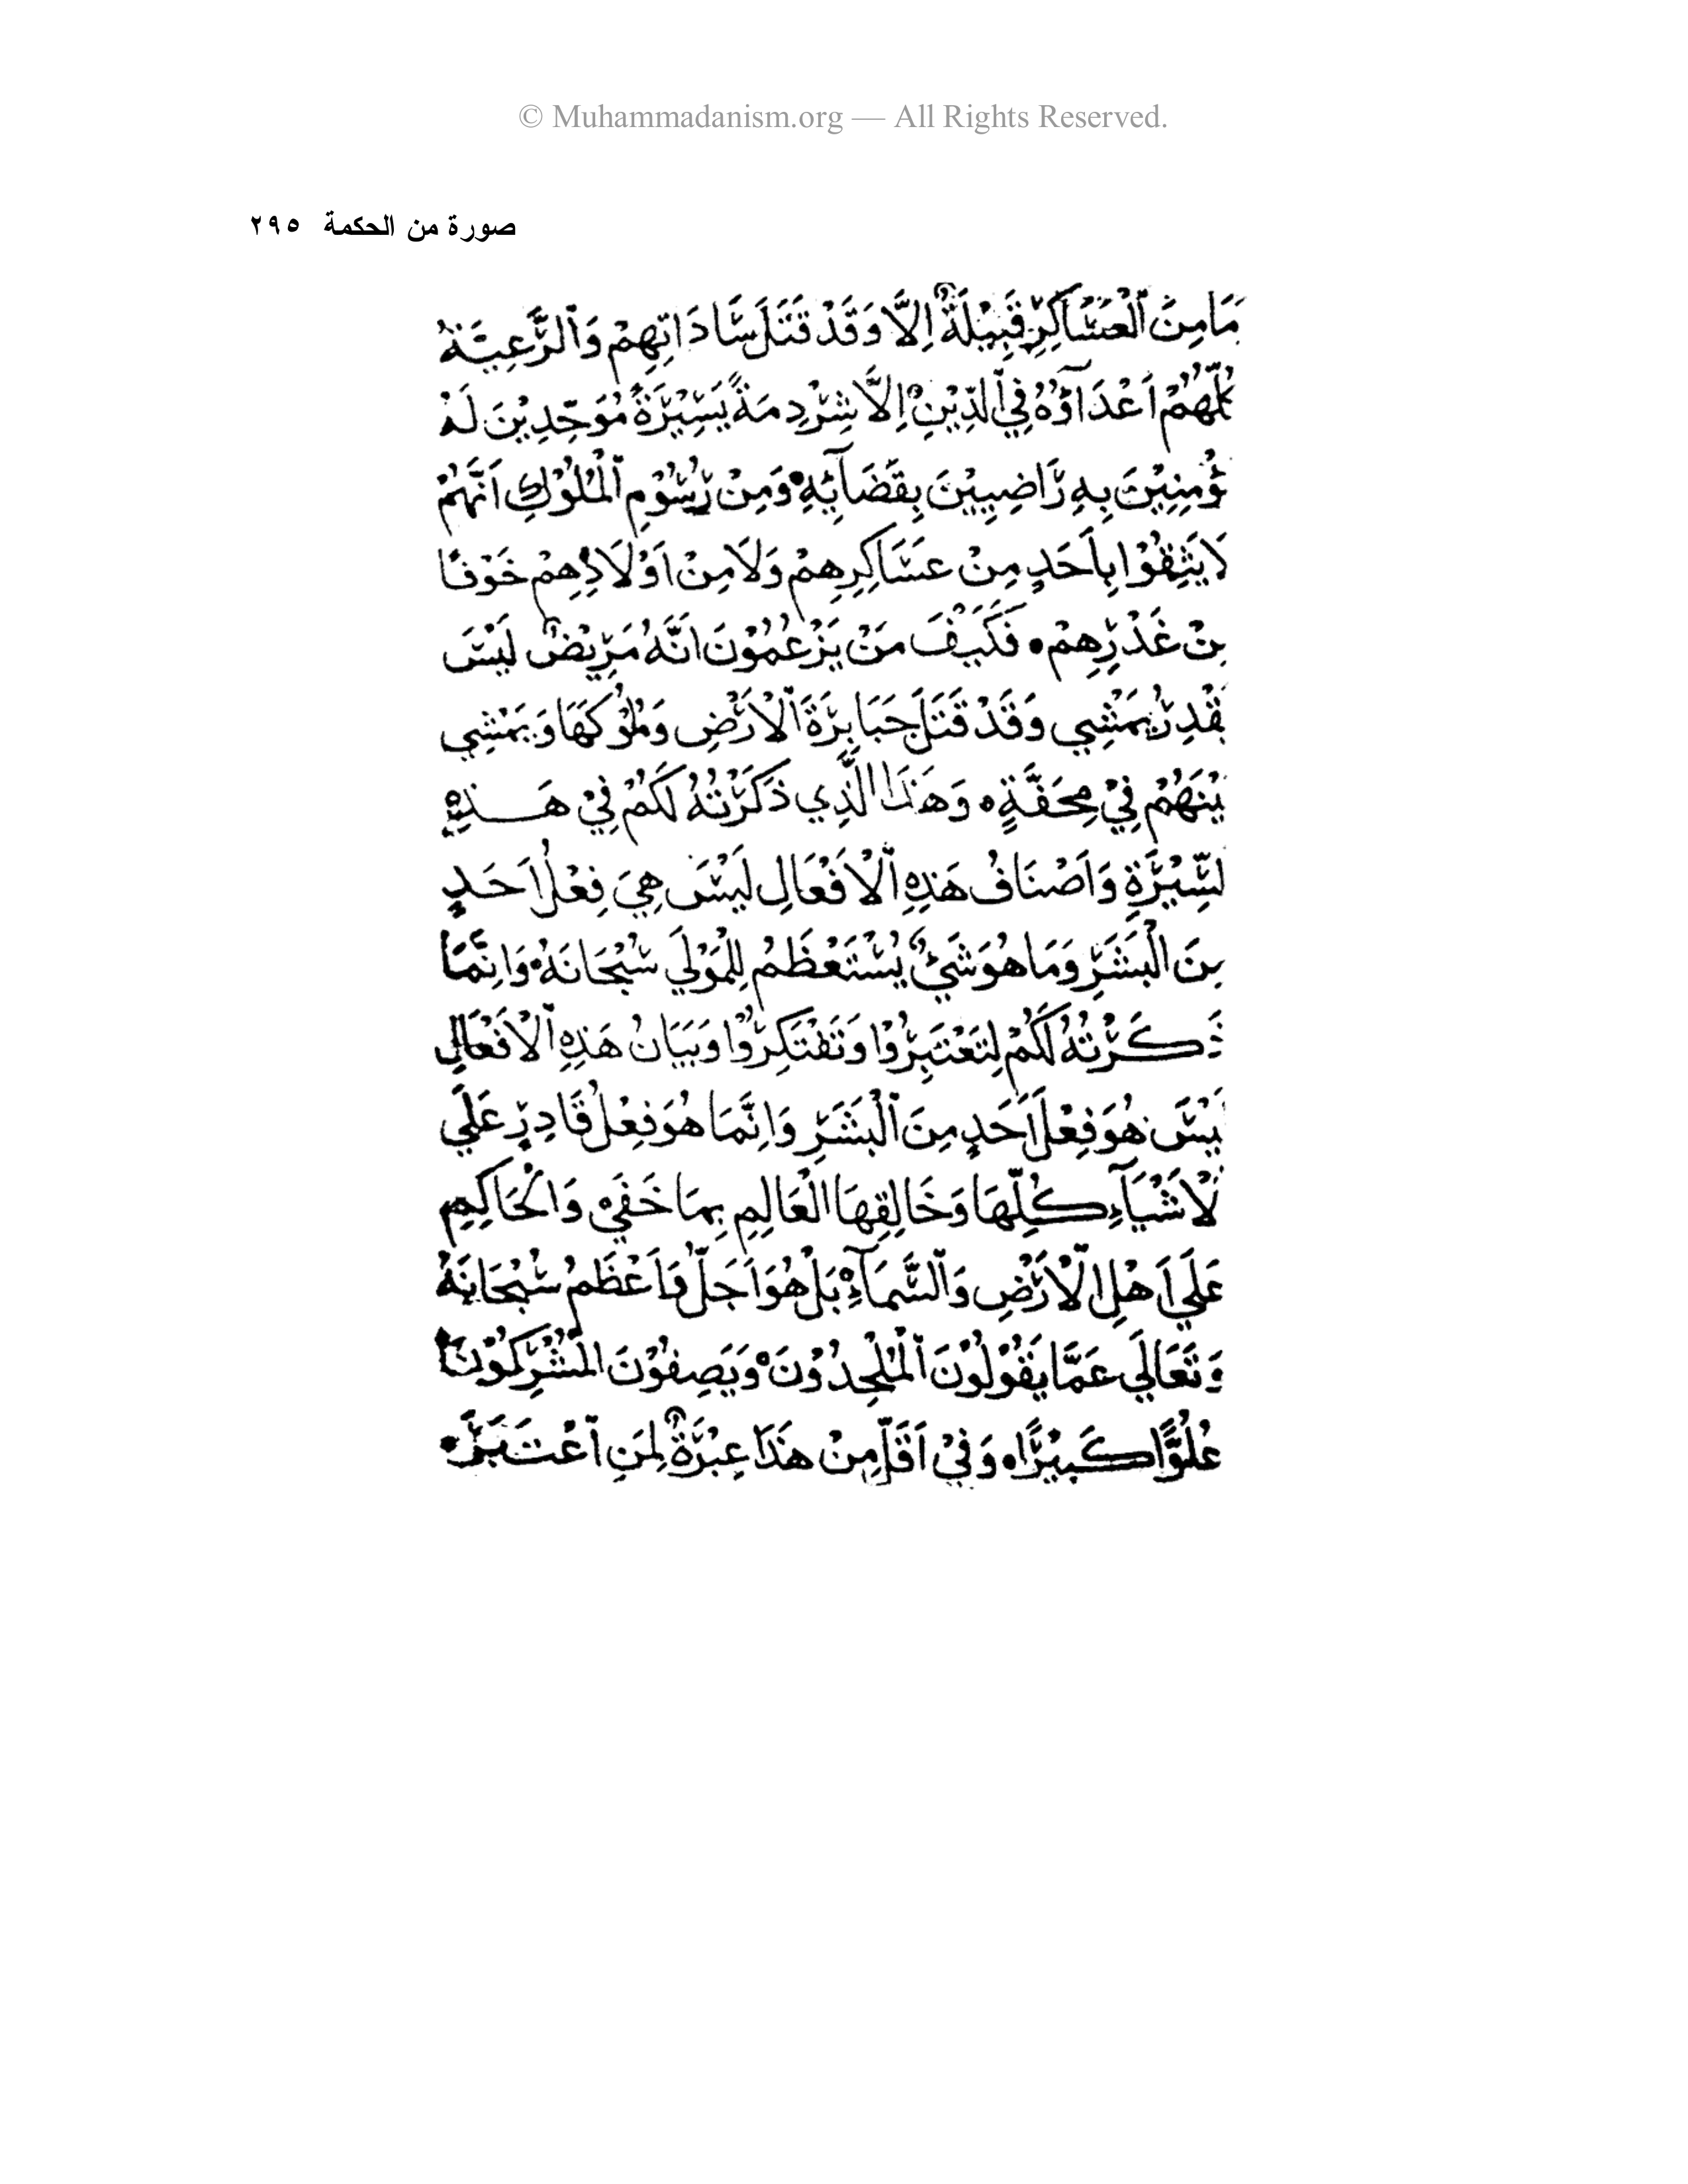 © Muhammadanism.org — All Rights Reserved.
صورة من الحكمة ٢٩٥
مَا مِنَ ٱلْعَسَاكِرِ قَبِيْلَةٌ اِلَّا وَقَدْ قَتَلَ سَادَاتِهِمْ وَٱلرَّعِيَّةُ
كُلُّهُمْ اَعْدَآؤُهُ فِي ٱلدِّيْنِ اِلَّا شِرْدِمَةً يَسِيْرَةً مُوَحِّدِيْنَ لَهُ
ؤْمِنِيْنَ بِهِ رَاضِيِيْنَ بِقَضَآئِهِ وَمِنْ رُسُوْمِ ٱلْمُلُوْكِ اَنَّهُمْ
لَا يَثِقُوْا بِاَحَدٍ مِنْ عَسَاكِرِهِمْ وَلَا مِنْ اَوْلَادِهِمْ خَوْفًا
مِنْ غَدْرِهِمْ • فَكَيْفَ مَنْ يَزْعُمُوْنَ اَنَّهُ مَرِيْضٌ لَيْسَ
يَقْدِرُ يَمْشِي وَقَدْ قَتَلَ جَبَابِرَةَ ٱلْاَرْضِ وَمُلُوْكَهَا وَيَمْشِي
بَيْنَهُمْ فِيْ مِحَفَّةٍ • وَهَذَا الَّذِي ذَكَرْتُهُ لَكُمْ فِيْ هَـــذِهِ
لسِّيْرَةِ وَاَصْنَافُ هَذِهِ ٱلْاَفْعَالِ لَيْسَ هِيَ فِعْلُ اَحَدٍ
مِنَ الْبَشَرِ وَمَا هُوَ شَيْءٌ يُسْتَعْظَمُ لِلْمَوْلَي سُبْحَانَهُ وَاِنَّمَا
ذَكَرْتُهُ لَكُمْ لِتَعْتَبِرُوْا وَتَفْتَكِرُوْا وَبَيَانُ هَذِهِ ٱلْاَفْعَالِ
لَيْسَ هُوَ فِعْلَ اَحَدٍ مِنَ ٱلْبَشَرِ وَاِنَّمَا هُوَ فِعْلُ قَادِرٍ عَلَي
لْاَشْيَآءِ كُلِّهَا وَخَالِقِهَا الْعَالِمِ بِمَا خَفَيْ وَالْحَاكِمِ
عَلَي اَهْلِ الْاَرْضِ وَالسَّمَآءِ بَلْ هُوَ اَجَلُّ وَاَعْظَمُ سُبْحَانَهُ
وَتَعَالَي عَمَّا يَقُوْلُوْنَ ٱلْمُلْحِدُوْنَ وَيَصِفُوْنَ الْمُشْرِكُوْنَ
عُلُوًّا كَبِيْرًا • وَفِيْ اَقَلِّ مِنْ هَذَا عِبْرَةٌ لِمَنِ ٱعْتَبَرَ •